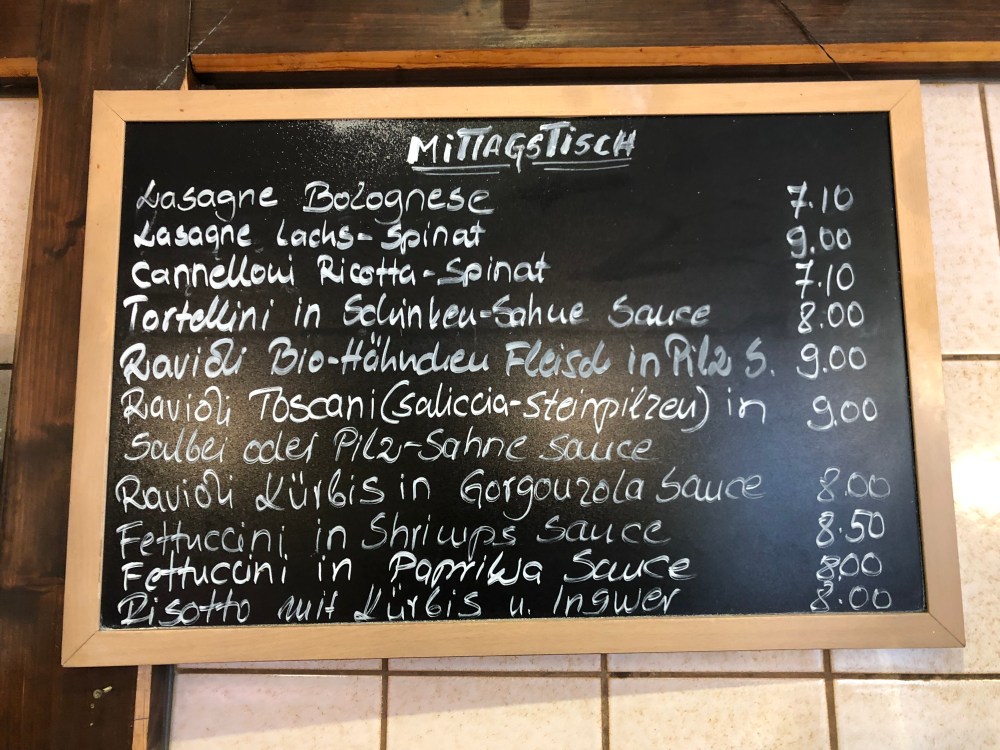 MiTTAGSTiSCH
Lasagne Bolognese 7.10
Lasagne Lachs-Spinat 9.00
Cannelloni Ricotta-Spinat 7.10
Tortellini in Schinken-Sahne Sauce 8.00
Ravioli Bio-Hähnchen Fleisch in Pilz S. 9.00
Ravioli Toscani (saliccia-steinpilzen) in 9.00
Salbei oder Pilz-Sahne sauce
Ravioli Kürbis in Gorgonzola Sauce 8.00
Fettuccini in Shrimps Sauce 8.50
Fettuccini in Paprika Sauce 8.00
Risotto mit Kürbis u. Ingwer 8.00